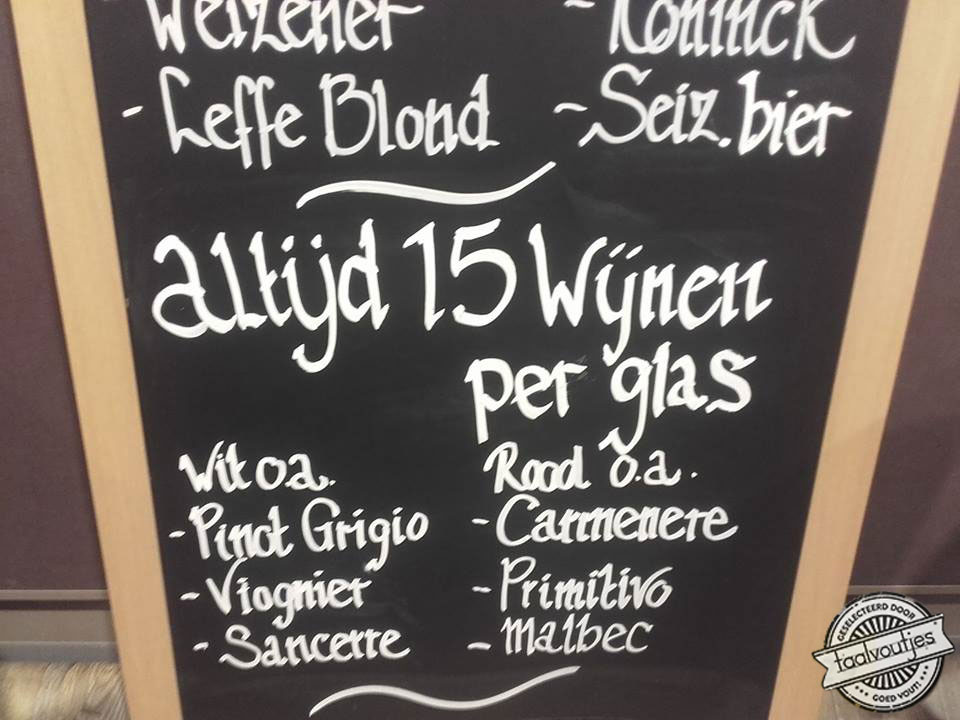 Weizener - Koninck
- Leffe Blond - Seiz. bier
altijd 15 Wijnen
per glas
Wit o.a. Rood o.a.
- Pinot Grigio - Carmenere
- Viognier - Primitivo
- Sancerre - Malbec
GESELECTEERD DOOR
taalvoutjes
GOED VOUT!